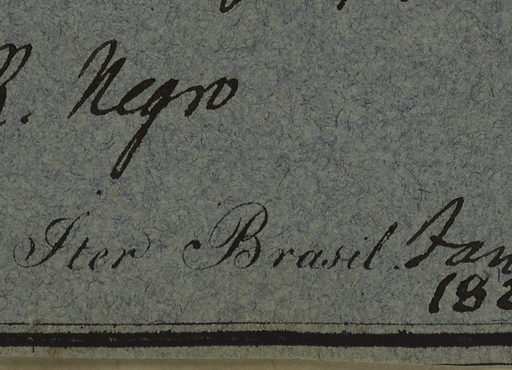 R. Negro
Iter Brasil. Jan
182